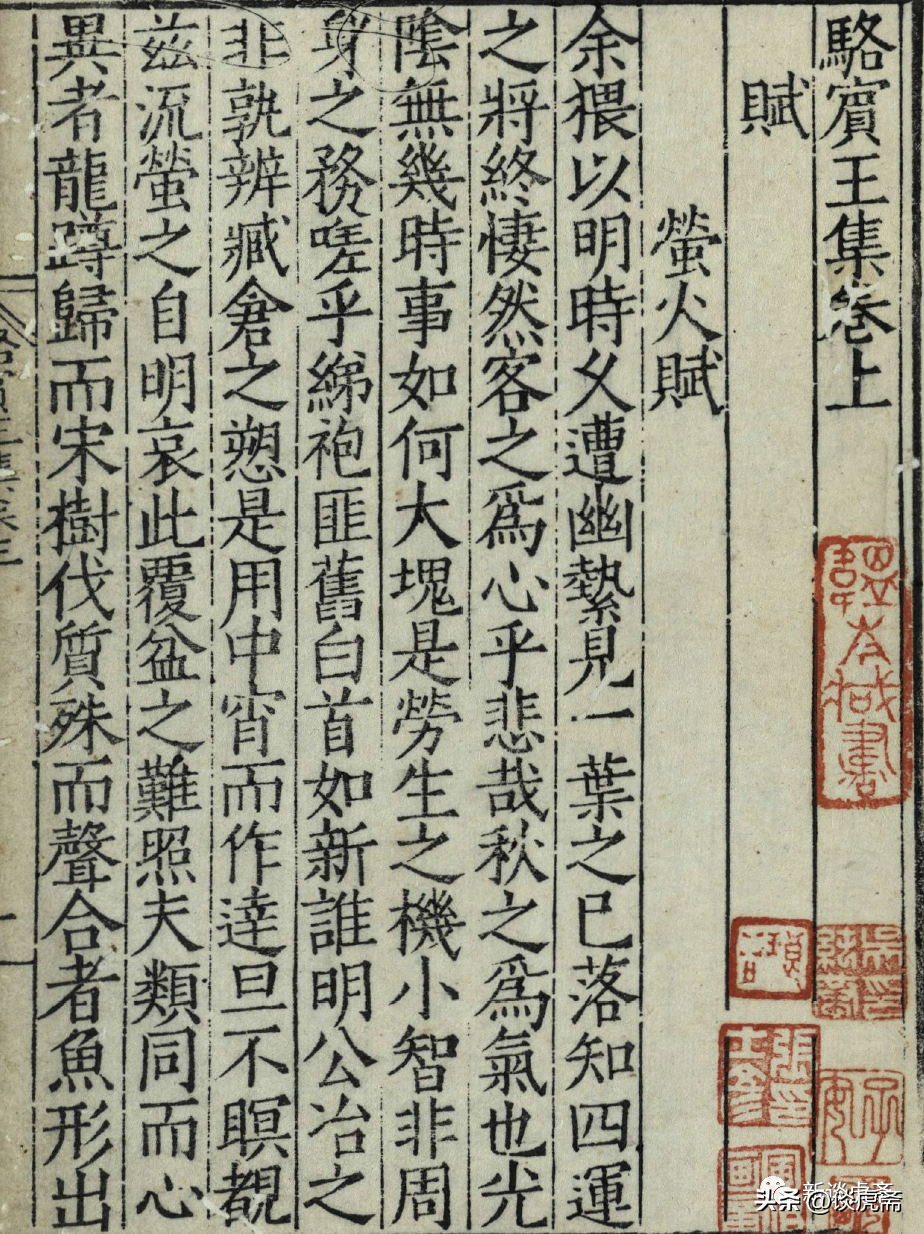 駱賓王集卷上
賦
螢火賦
余猥以明時久遭幽縶見一葉之已落知四運
之將終悽然客之爲心乎悲哉秋之爲氣也光
陰無幾時事如何大塊是勞生之機小智非周
身之務嗟乎綈袍匪舊白首如新誰明公冶之
非孰辨臧倉之愬是用中宵而作達旦不瞑覩
茲流螢之自明哀此覆盆之難照夫類同而心
異者龍蹲歸而宋樹伐質殊而聲合者魚形出
新谈虎斋
头条 @谈虎斋